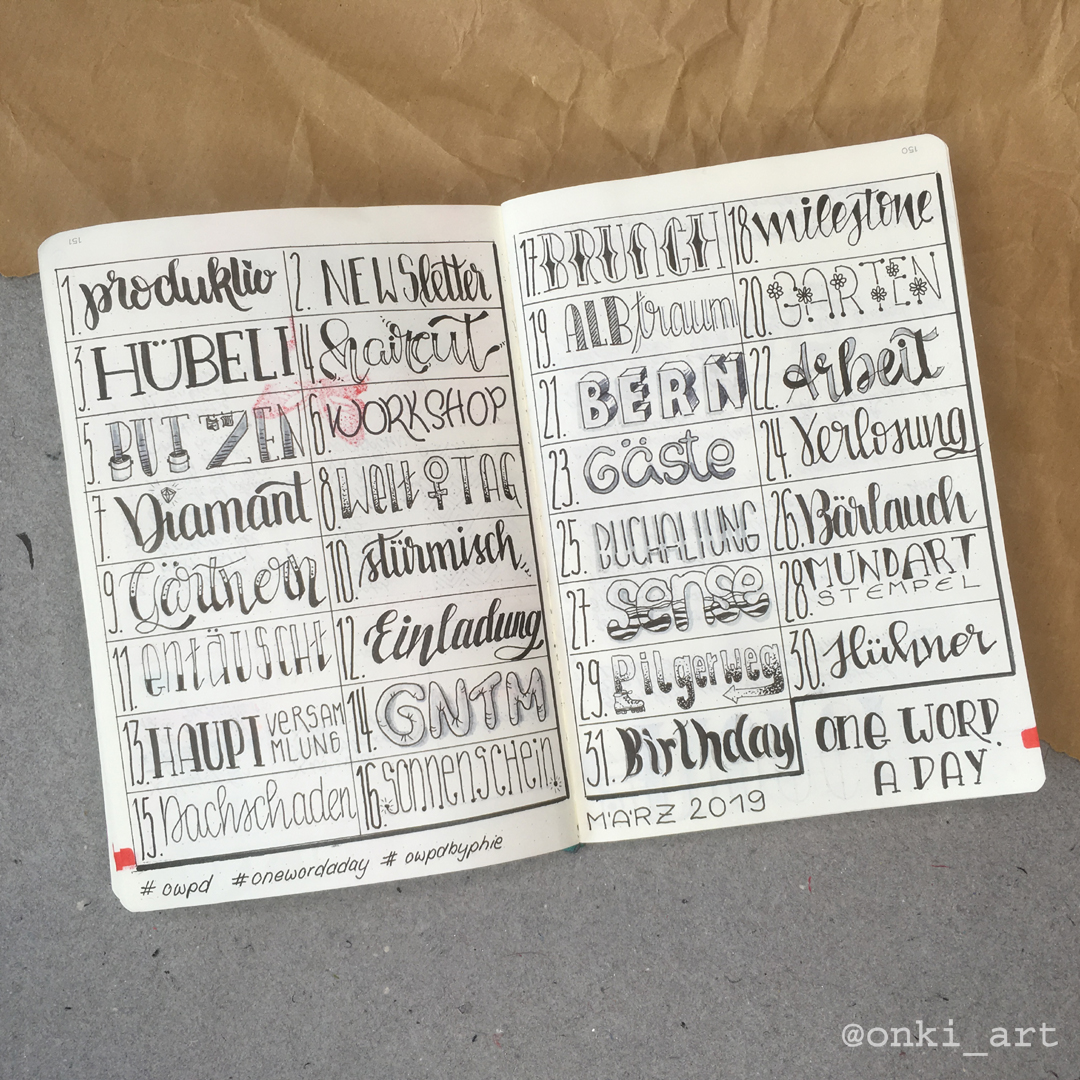 151
1. produktiv
2. NEWSletter
3. HÜBELI
4. Haircut
5. PUTZEN
6. WORKSHOP
7. Diamant
8. Welt♀TAG
9. Gärtnern
10. stürmisch
11. entäuscht
12. Einladung
13. HAUPT VERSAM
MLUNG
14. GNTM
15. Dachschaden
16. SONNENSCHEIN
# owpd #onewordaday # owpdbyphie
150
17. BRUNCH
18. milestone
19. ALBtraum
20. GARTEN
21. BERN
22. Arbeit
23. Gäste
24. Verlosung
25. BUCHALTUNG
26. Bärlauch
27. sense
28. MUNDART
STEMPEL
29. Pilgerweg
30. Hühner
31. Birthday
ONE WORD
A DAY
MÄRZ 2019
@onki_art